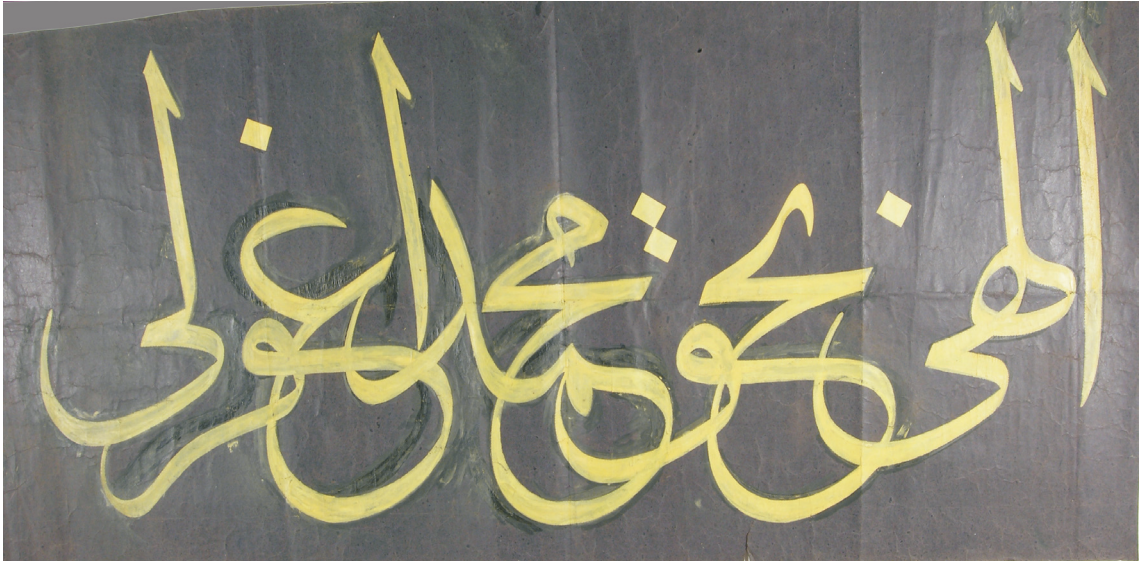 الهى بحق محمد اغفر لى